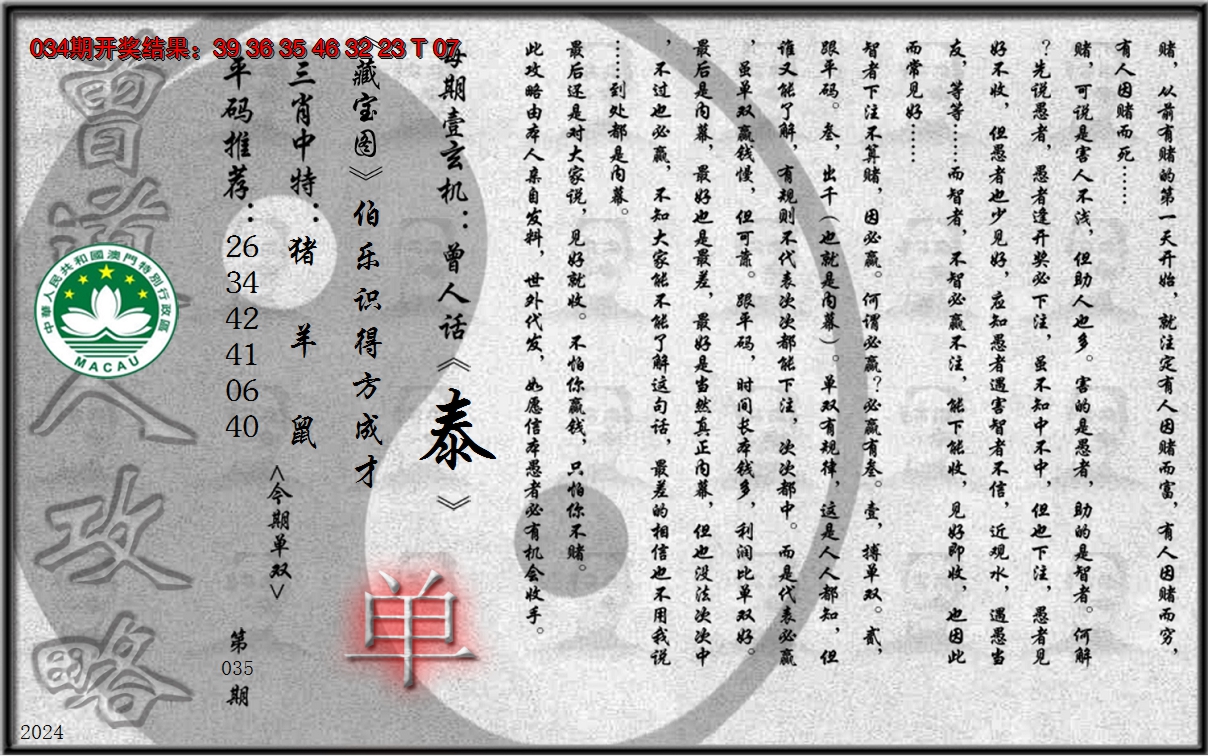 034期开奖结果：39 36 35 46 32 23 T 07
赌，从前有赌的第一天开始，就注定有人因赌而富，有人因赌而穷，
有人因赌而死……
赌，可说是害人不浅，但助人也多。害的是愚者，助的是智者。何解
？先说愚者，愚者逢开奖必下注，虽不知中不中，但也下注，愚者见
好不收，但愚者也少见好，应知愚者遇害智者不信，近观水，遇愚当
友，等等……而智者，不智必赢不注，能下能收，见好即收，也因此
而常见好……
智者下注不算赌，因必赢。何谓必赢？必赢有叁。壹，搏单双。贰，
跟平码。叁，出千（也就是内幕）。单双有规律，这是人人都知，但
谁又能了解，有规则不代表次次都能下注，次次都中。而是代表必赢
，虽单双赢钱慢，但可靠。跟平码，时间长本钱多，利润比单双好。
最后是内幕，最好也是最差，最好是当然真正内幕，但也没法次次中
，不过也必赢，不知大家能不能了解这句话，最差的相信也不用我说
……到处都是内幕。
最后还是对大家说，见好就收。不怕你赢钱，只怕你不赌。
此攻略由本人亲自发料，世外代发，如愿信本愚者必有机会收手。
每期壹玄机：曾人话《泰》
《藏宝图》伯乐识得方成才
单
三肖中特：猪 羊 鼠
<今期单双>
平码推荐：26 34 42 41 06 40
第035期
曾道人攻略
中華人民共和國澳門特別行政區
MACAU
2024